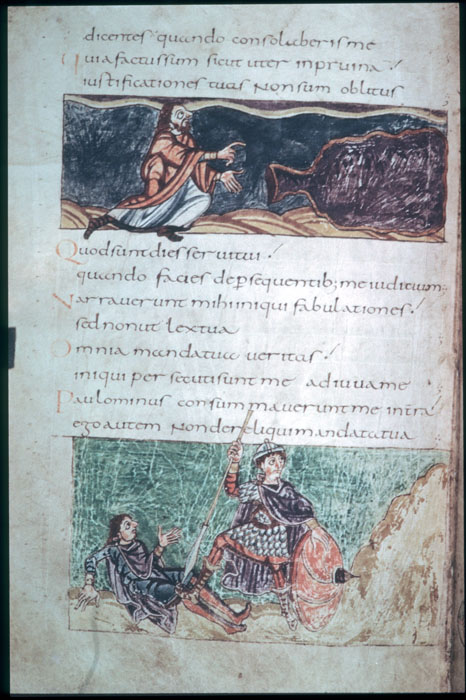 dicentes quando consolaberis me
Quia factus sum sicut uter in pruina
iustificationes tuas non sum oblitus
Quod sunt dies servi tui
quando facies de persequentib; me iudicium
Narraverunt mihi iniqui fabulationes
sed non ut lex tua
Omnia mandata tua veritas
iniqui persecuti sunt me adiuva me
Paulominus consummaverunt me in t̄ra
ego autem non dereliqui mandata tua